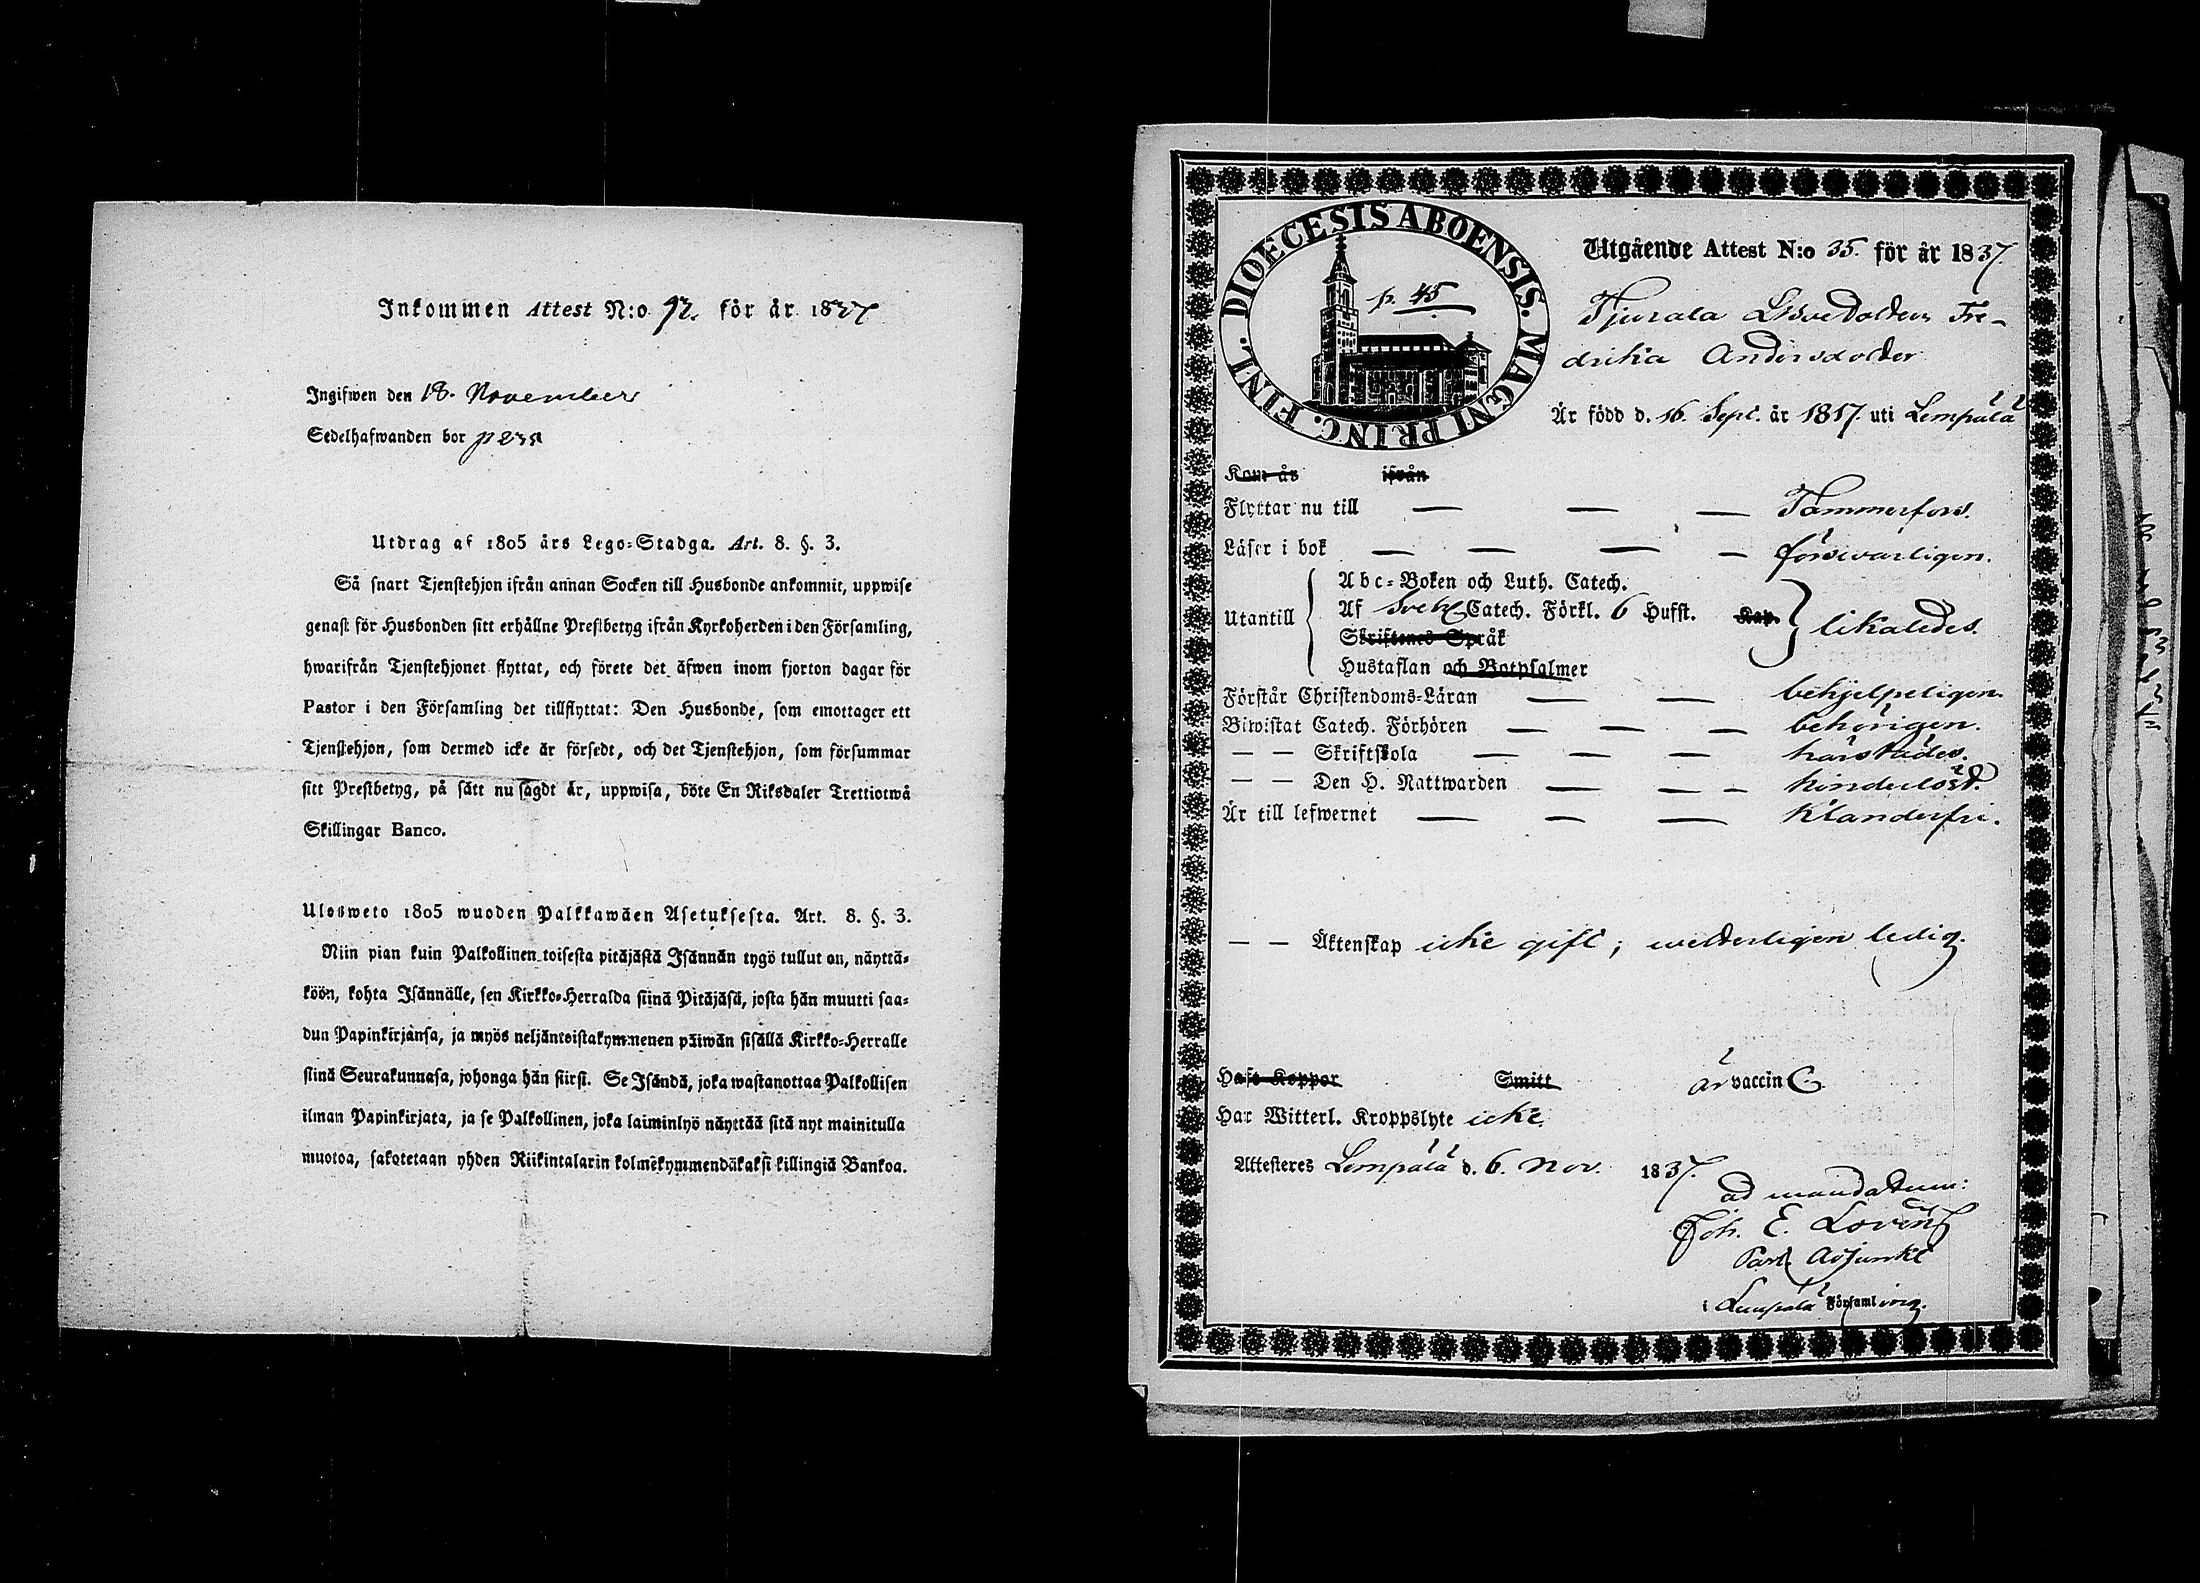 Inkommen Attest N:o 92. för år 1837
Ingifwen den 18. November
Sedelhafwanden bor p 231
Utdrag af 1805 års Lego-Stadga. Art. 8. §. 3.
Så snart Tjenstehjon ifrån annan Socken till Husbonde ankommit, uppwise
genast för Husbonden sitt erhållne Prestbetyg ifrån Kyrkoherden i den Församling,
hwarifrån Tjenstehjonet flyttat, och förete det äfwen inom fjorton dagar för
Pastor i den Församling det tillflyttat: Den Husbonde, som emottager ett
Tjenstehjon, som dermed icke är försedt, och det Tjenstehjon, som försummar
sitt Prestbetyg, på sätt nu sagdt är, uppwisa, böte En Riksdaler Trettiotwå
Skillingar Banco.
Ulosweto 1805 wuoden Palkkawäen Asetuksesta. Art. 8. §. 3.
Niin pian kuin Palkollinen toisesta pitäjästä Isännän tygö tullut on, näyttä-
köön, kohta Isännälle, sen Kirkko-Herralda siinä Pitäjäsä, josta hän muutti saa-
dun Papinkirjansa, ja myös neljäntoistakymmenen päiwän sisällä Kirkko-Herralle
siinä Seurakunnasa, johonga hän siirsi. Se Isändä, joka wastanottaa Palkollisen
ilman Papinkirjata, ja se Palkollinen, joka laiminlyö näyttää sitä nyt mainitulla
muotoa, sakotetaan yhden Riikintalarin kolmekymmendäkaksi killingiä Bankoa.
DIOECESIS ABOENSIS. MAGNI PRINC. FINL.
p. 45
Utgående Attest N:o 35. för år 1837.
Fre-
drika Andersdotter
Är född d. 16. Sept. år 1817. uti Lempälä
Kom år ifrån
Flyttar nu till — — — Tammerfors.
Läser i bok — — — — försvarligen.
Utantill
Abc-Boken och Luth. Catech.
Af Sveb. Catech. Förkl. 6 Hufst. Kap.
Skriftenes Språk
Hustaflan och Botpsalmer
likaledes.
Förstår Christendoms-Läran — — behjelpeligen.
Biwistat Catech. Förhören — — — behörigen.
— — Skriftskola — — — härstädes.
— — Den H. Nattwarden — — — hinderlöst.
Är till lefwernet — — — klanderfri.
— — Äktenskap icke gift; wederligen ledig.
Haft Koppor Smitt är vaccin
Har Witterl. Kroppslyte icke.
Attesteres Lempälä d. 6. Nov. 1837.
ad mandatum:
Joh. E. Lovén
Past. Adjunkt
i Lempälä Församling.